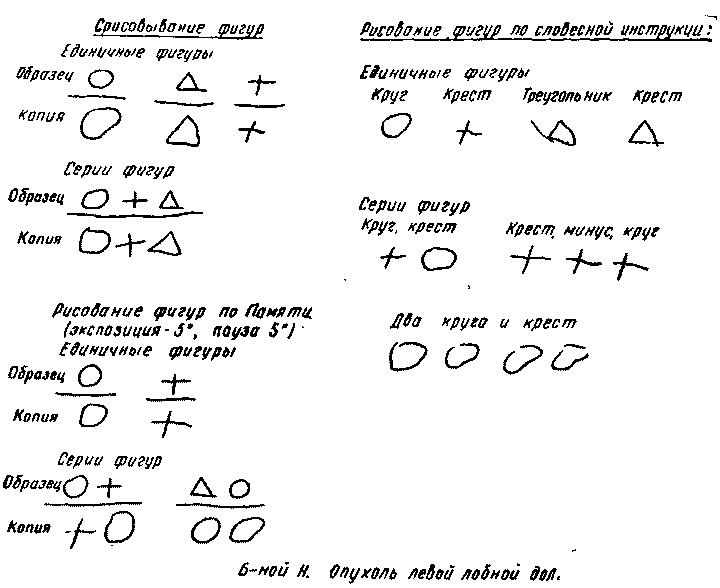 Срисовывание фигур
Единичные фигуры
Образец
Копия
Серии фигур
Образец
Копия
Рисование фигур по Памяти
(экспозиция - 5", пауза 5")
Единичные фигуры
Образец
Копия
Серии фигур
Образец
Копия
Рисование фигур по словесной инструкции:
Единичные фигуры
Круг Крест Треугольник Крест
Серии фигур
Круг, крест Крест, минус, круг
Два круга и крест
Б-ной Н. Опухоль левой лобной дол.